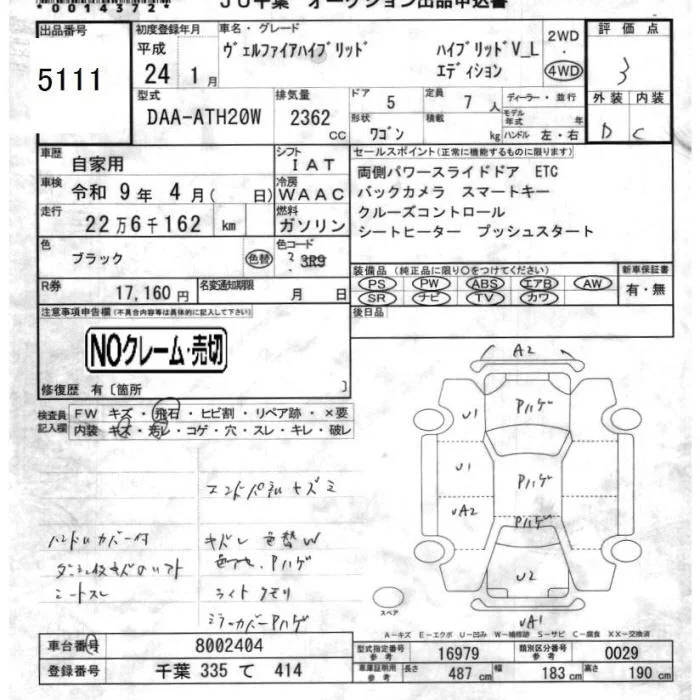 00143727
JU千葉 オークション出品申込書
出品番号 5111
初度登録年月 平成 24 1月
車名・グレード ヴェルファイアハイブリッド ハイブリッドV_L エディション
2WD ・ 4WD
評価点 3
外装 内装
D C
型式 DAA-ATH20W
排気量 2362 CC
ドア 5 定員 7人 ディーラー・並行
形状 ワゴン 積載 kg モデル年式 年
ハンドル 左・右
車歴 自家用
シフト IAT
車検 令和 9年 4月( 日)
冷房 WAAC
走行 22万6千162 km
燃料 ガソリン
色 ブラック 色替
色コード 2 3R9
R券 17,160円
名変通知期限 月 日
セールスポイント(正常に機能するものに限り)
両側パワースライドドア ETC
バックカメラ スマートキー
クルーズコントロール
シートヒーター プッシュスタート
装備品 (純正品に限り○をつけてください)
PS PW ABS エアB AW
SR ナビ TV カワ
新車保証書 有・無
後日品
注意事項申告欄(不具合内容等は具体的に記入して下さい)
NOクレーム・売切
修復歴 有〔箇所 〕
検査員記入欄
FW キズ・飛石・ヒビ割・リペア跡・×要
内装 キズ・汚レ・コゲ・穴・スレ・キレ・破レ
ハンドルカバー付
シートスレ
キズレ 色替W
Pハゲ
ライトクモリ
ミラーカバーPハゲ
A2
U1
Pハゲ
U1
Pハゲ
UA2
Pハゲ
U2
UA1
スペア
A-キズ E-エクボ U-凹み W-補修跡 S-サビ C-腐食 XX-交換済
車台番号 8002404
登録番号 千葉 335 て 414
型式指定番号 参考 16979
類別区分番号 参考 0029
車庫証明用 参考 長さ 487 cm 幅 183 cm 高さ 190 cm